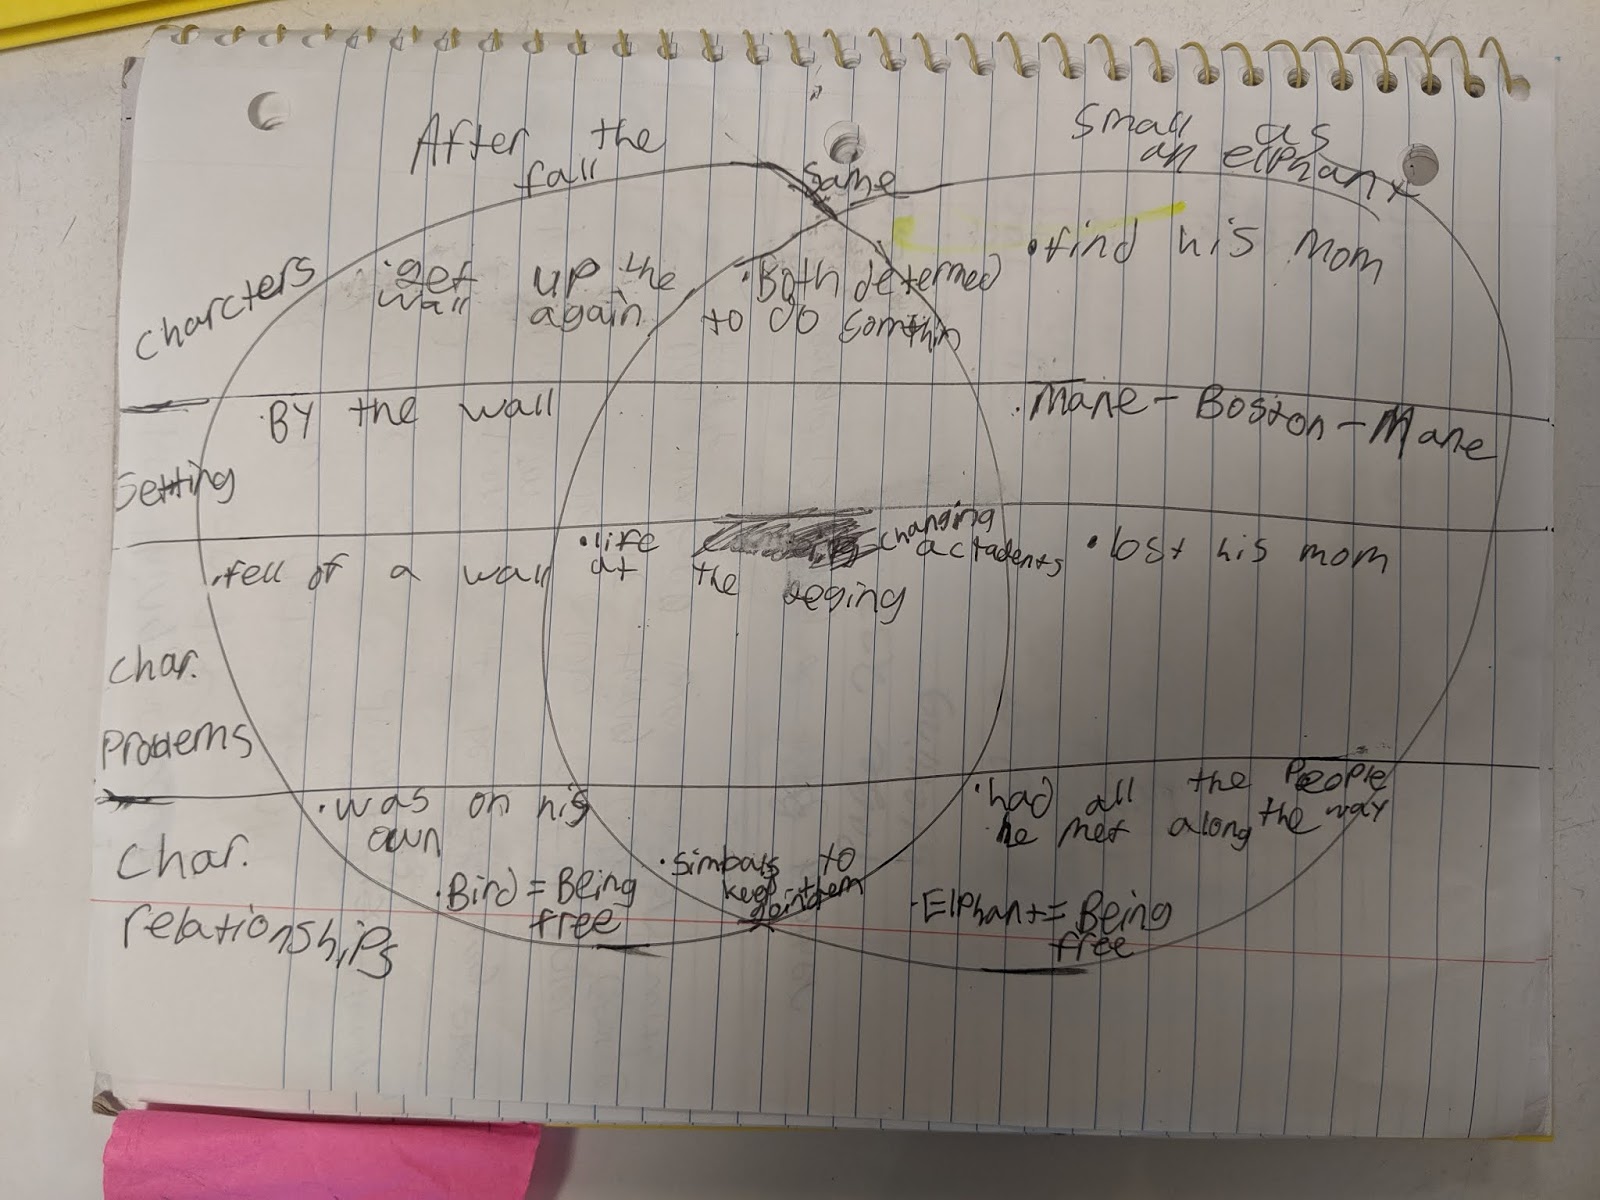 After the
fall
Same
Small as
an elphant
Charcters
·get up the
wall again
·Both determed
to do somthin
·find his mom
Setting
·By the wall
·Mane - Boston - Mane
Char.
Problems
·fell of a wall
·life changing
actadents
at the beging
·lost his mom
Char.
relationships
·was on his
own
·Bird = Being
free
·Simbals to
keep them
going
·had all the People
he met along the way
·Elphant = Being
free